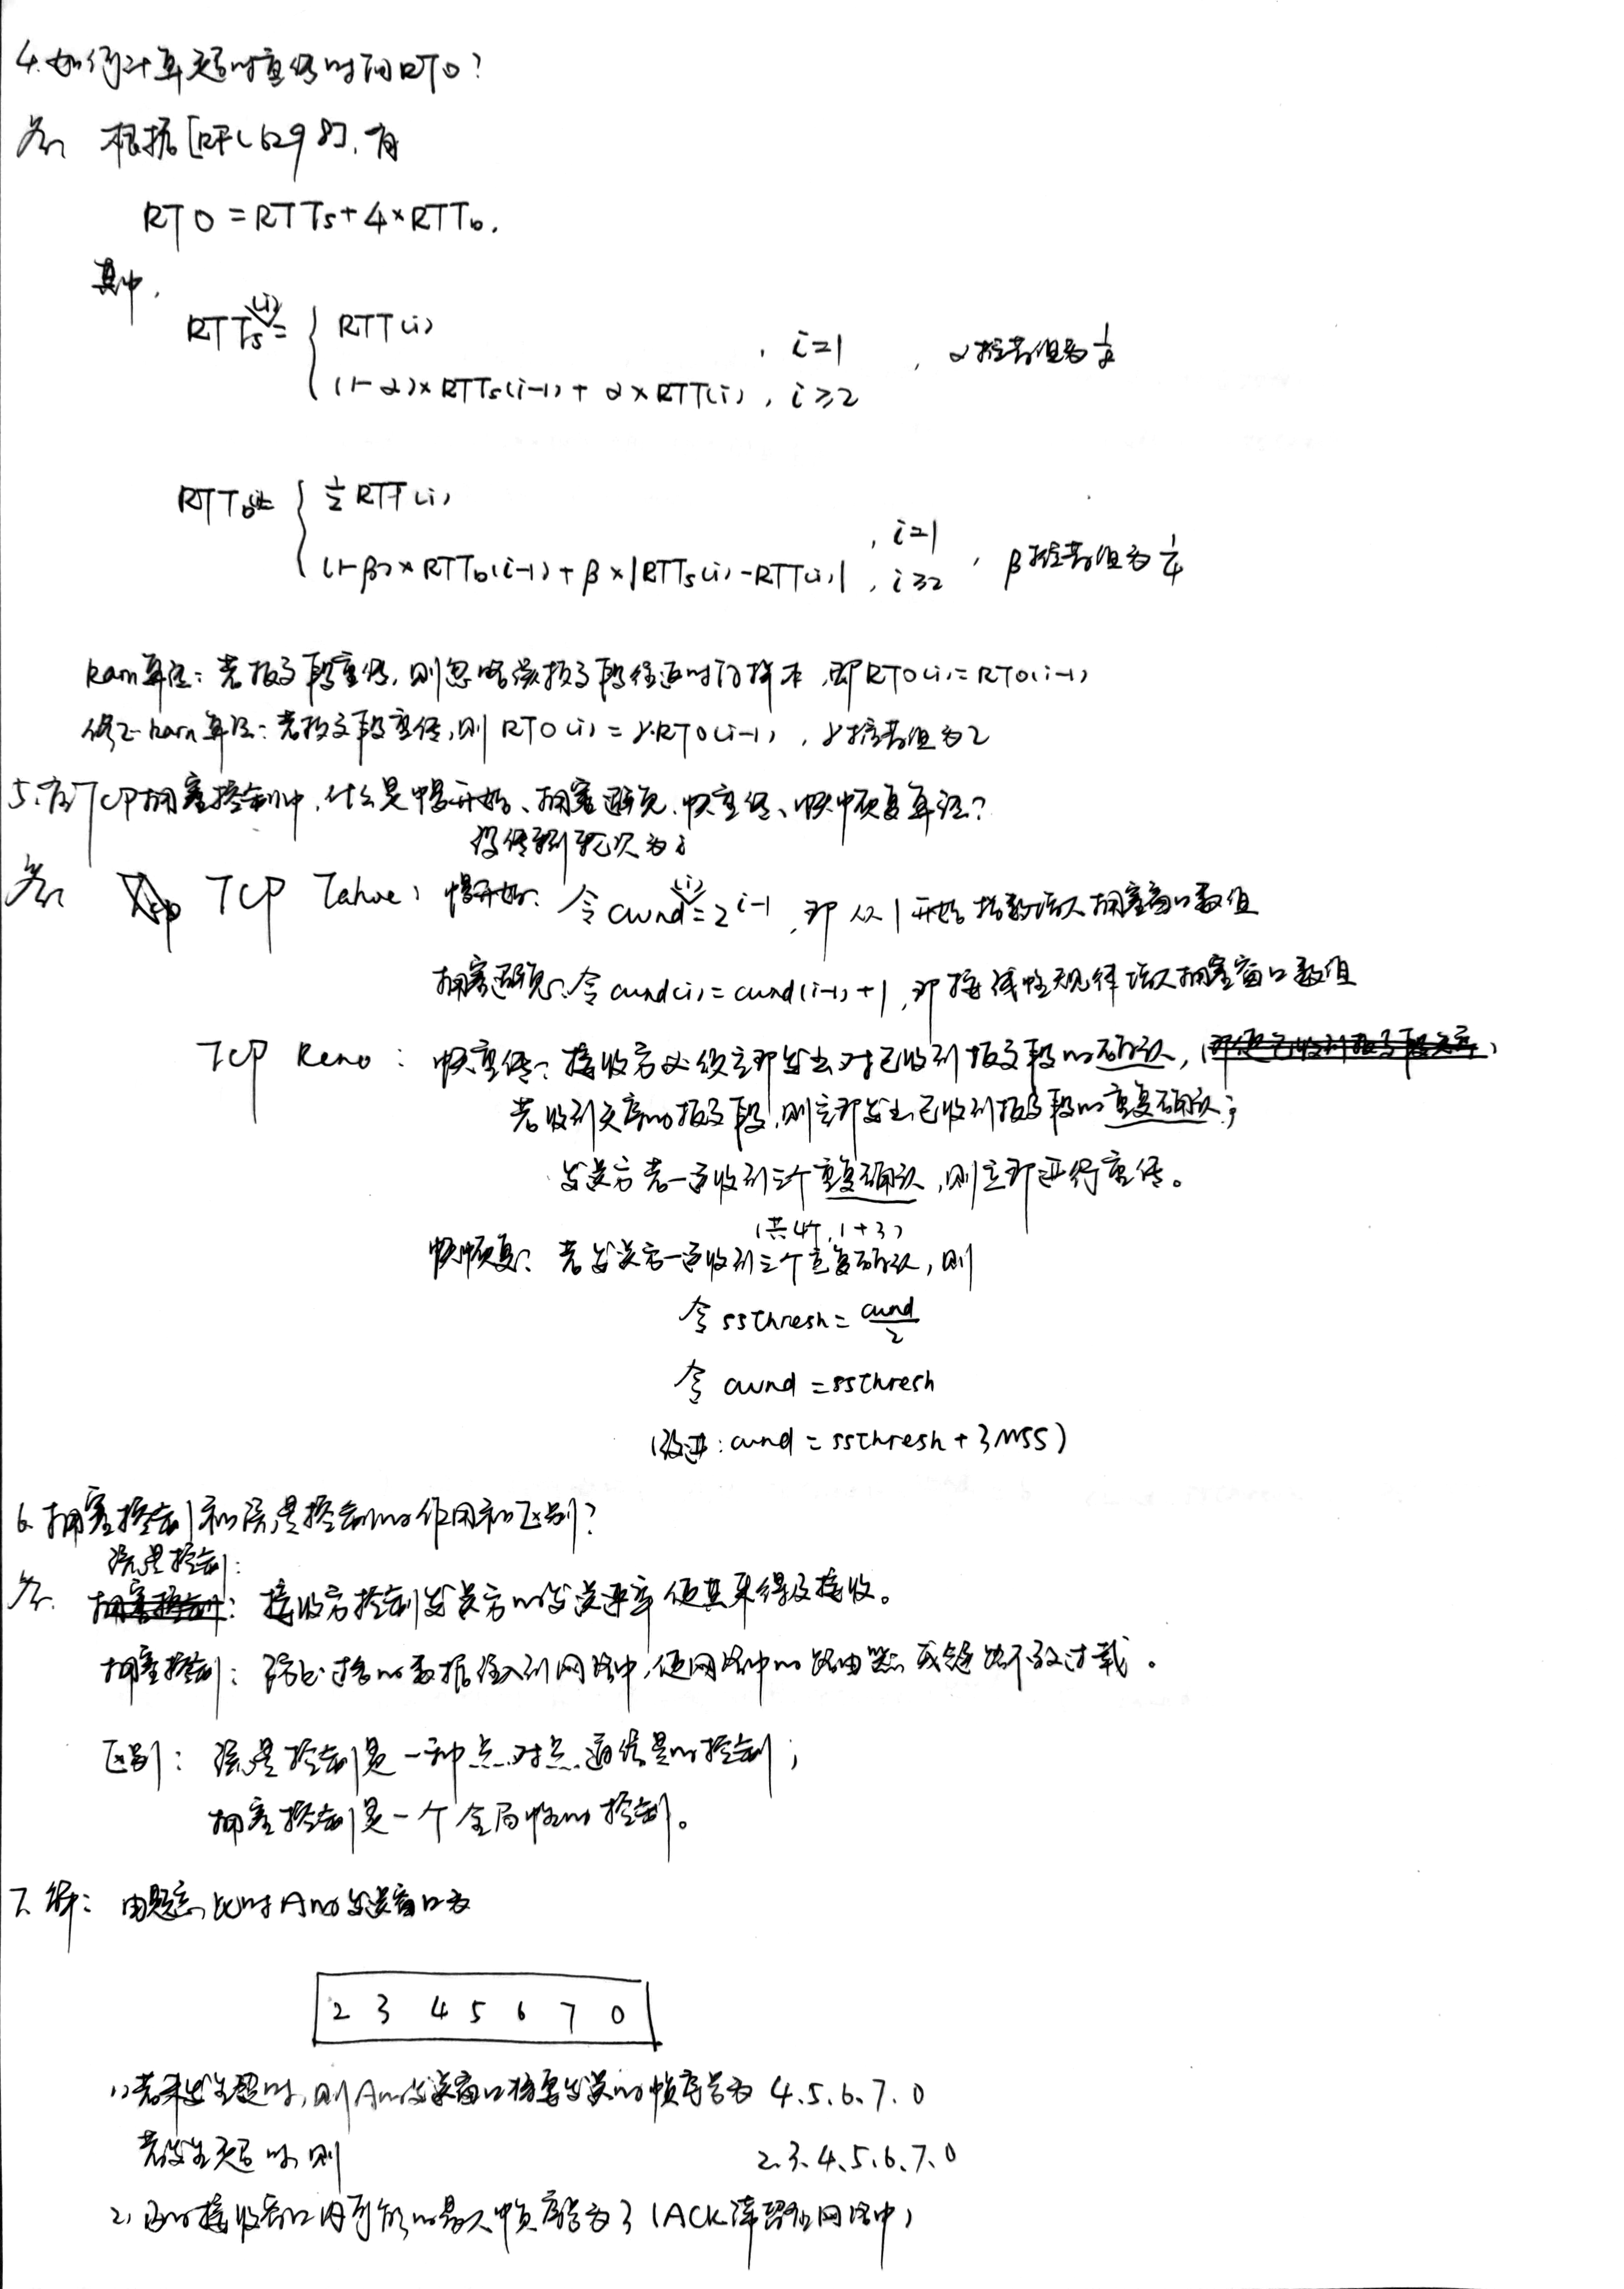 4.如何计算超时重传时间RTO？
答：根据[RFC6298],有
RTO=RTTs+4×RTTD.
其中,
RTTs(i)= { RTT(i) , i=1
(1-α)×RTTs(i-1)+α×RTT(i) , i≥2 , α推荐值为1/8
RTTD(i)= { 1/2 RTT(i) , i=1
(1-β)×RTTD(i-1)+β×|RTTs(i)-RTT(i)| , i≥2 , β推荐值为1/4
karn算法：若报文段重传,则忽略该报文段往返时间样本,即RTO(i)=RTO(i-1)
修正karn算法：若报文段重传,则RTO(i)=γ·RTO(i-1),γ推荐值为2
5.在TCP拥塞控制中,什么是慢开始、拥塞避免、快重传、快恢复算法？
设传输轮次为i
答：TCP Tahoe：慢开始：令cwnd(i)=2^(i-1),即从1开始指数增大拥塞窗口数值
拥塞避免：令cwnd(i)=cwnd(i-1)+1,即按线性规律增大拥塞窗口数值
TCP Reno：快重传：接收方必须立即发出对已收到报文段的确认,
若收到失序的报文段,则立即发出已收到报文段的重复确认；
发送方若一连收到三个重复确认,则立即进行重传。
(共4个,1+3)
快恢复：若发送方一连收到三个重复确认,则
令ssthresh=cwnd/2
令cwnd=ssthresh
(改进：cwnd=ssthresh+3MSS)
6.拥塞控制和流量控制的作用和区别？
流量控制：
答：接收方控制发送方的发送速率使其来得及接收。
拥塞控制：防止过多的数据注入到网络中,使网络中的路由器或链路不致过载。
区别：流量控制是一种点对点通信量的控制；
拥塞控制是一个全局性的控制。
7.解：由题意,此时A的发送窗口为
2 3 4 5 6 7 0
1)若未发生超时,则A的发送窗口将要发送的帧序号为 4.5.6.7.0
若发生超时,则 2.3.4.5.6.7.0
2)B的接收窗口内可能的最大帧序号为3(ACK滞留在网络中)